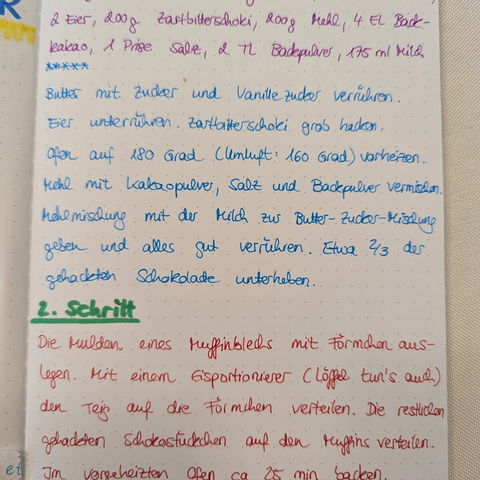 R
2 Eier, 200g Zartbitterschoki, 200g Mehl, 4 EL Back-
kakao, 1 Prise Salz, 2 TL Backpulver, 175 ml Milch
*****
Butter mit Zucker und Vanillezucker verrühren.
Eier unterrühren. Zartbitterschoki grob hacken.
Ofen auf 180 Grad (Umluft: 160 Grad) vorheizen.
Mehl mit Kakaopulver, Salz und Backpulver vermischen.
Mehlmischung mit der Milch zur Butter-Zucker-Mischung
geben und alles gut verrühren. Etwa 2/3 der
gehackten Schokolade unterheben.
2. Schritt
Die Mulden eines Muffinblechs mit Förmchen aus-
legen. Mit einem Eisportionierer (Löffel tun's auch)
den Teig auf die Förmchen verteilen. Die restlichen
gehackten Schokostückchen auf den Muffins verteilen.
et
Im vorgeheizten Ofen ca 25 min backen.